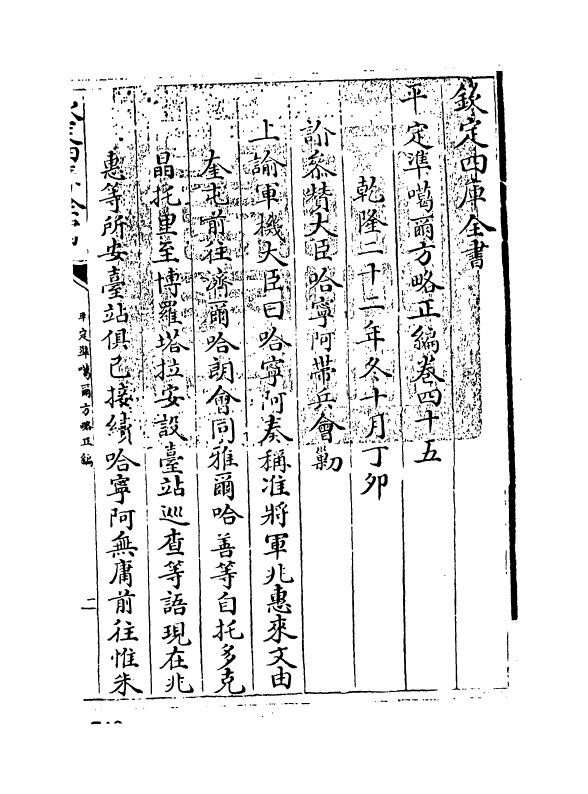 欽定四庫全書
平定準噶爾方略正編卷四十五
乾隆二十二年冬十月丁卯
諭叅贊大臣哈寧阿帶兵會勦
上諭軍機大臣曰哈寧阿奏稱准將軍兆惠來文由
奎屯前往濟爾哈朗會同雅爾哈善等自托多克
晶托里至博羅塔拉安設臺站巡查等語現在兆
惠等所安臺站俱已接續哈寧阿無庸前往惟朱
平定準噶爾方略正編
二